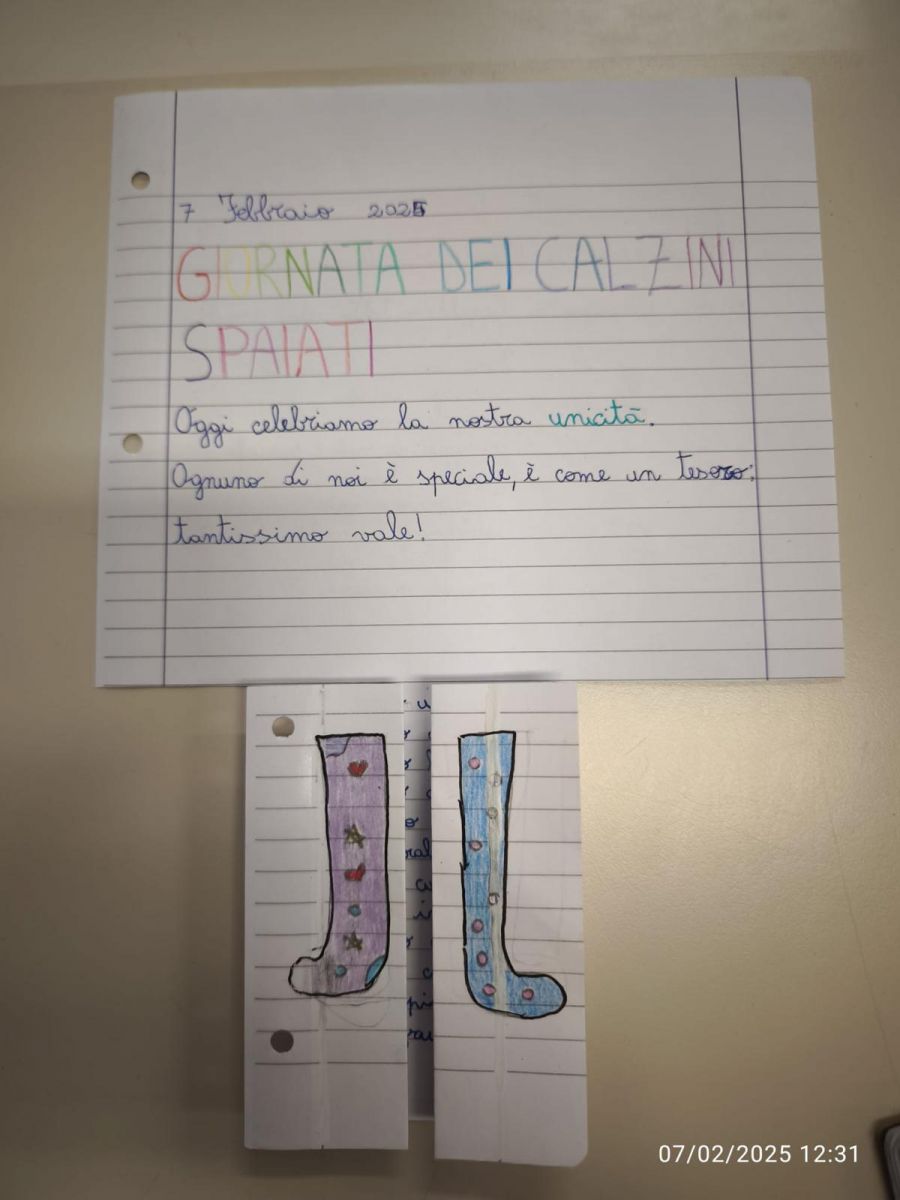 7 Febbraio 2025
GIORNATA DEI CALZINI
SPAIATI
Oggi celebriamo la nostra unicità.
Ognuno di noi è speciale, è come un tesoro:
tantissimo vale!
07/02/2025 12:31